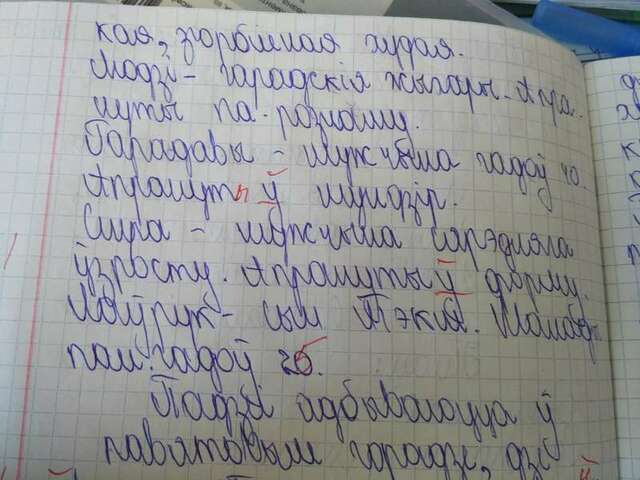 кая, згорбленая худая.
Людзі - гарадскія жыхары. Апра-
нуты па-рознаму.
Гарадавы - мужчына гадоў 40.
Апрануты ў мундзір.
Шпра - мужчына сярэдняга
ўзросту. Апрануты ў форму.
Лаўрук - сын Тэклі. Малады
пан. гадоў 26.
Падзеі адбываюцца ў
павятовым горадзе, дзе